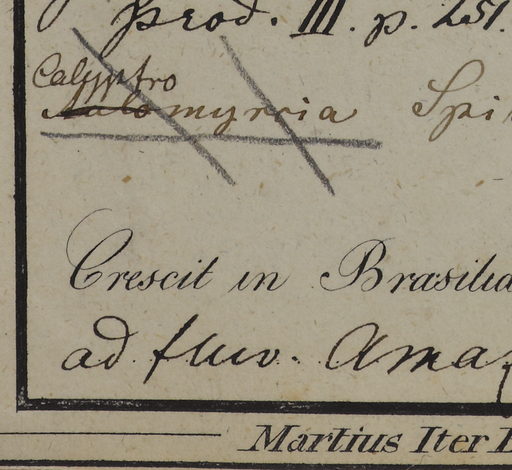 prod. III. p. 251.
Calyptro
myrcia Spi
Crescit in Brasilia
ad fluv. Ama
Martius Iter